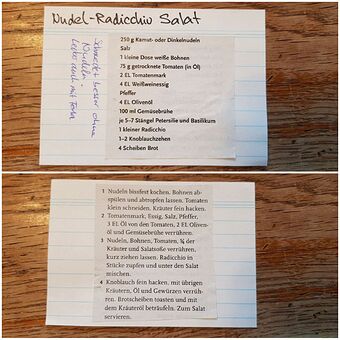 Nudel-Radicchio Salat
250 g Kamut- oder Dinkelnudeln
Salz
1 kleine Dose weiße Bohnen
75 g getrocknete Tomaten (in Öl)
2 EL Tomatenmark
4 EL Weißweinessig
Pfeffer
4 EL Olivenöl
100 ml Gemüsebrühe
je 5–7 Stängel Petersilie und Basilikum
1 kleiner Radicchio
1–2 Knoblauchzehen
4 Scheiben Brot
Schmeckt besser ohne
Nudeln
Lecker auch mit
1 Nudeln bissfest kochen. Bohnen ab-
spülen und abtropfen lassen. Tomaten
klein schneiden. Kräuter fein hacken.
2 Tomatenmark, Essig, Salz, Pfeffer,
3 EL Öl von den Tomaten, 2 EL Oliven-
öl und Gemüsebrühe verrühren.
3 Nudeln, Bohnen, Tomaten, ¾ der
Kräuter und Salatsoße verrühren,
kurz ziehen lassen. Radicchio in
Stücke zupfen und unter den Salat
mischen.
4 Knoblauch fein hacken, mit übrigen
Kräutern, Öl und Gewürzen verrüh-
ren. Brotscheiben toasten und mit
dem Kräuteröl beträufeln. Zum Salat
servieren.